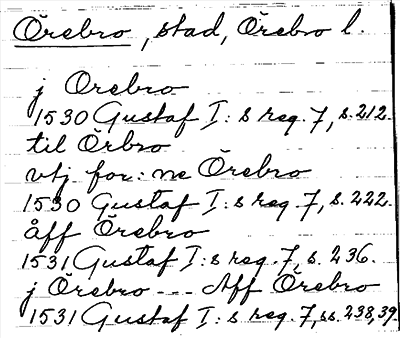 Örebro, stad, Örebro l.
j Örebro
1530 Gustaf I:s reg. 7, s. 212.
til Örbro
vtj for:ne Örebro
1530 Gustaf I:s reg. 7, s. 222.
åff Örebro
1531 Gustaf I:s reg. 7, s. 236.
j Örebro --- Aff Örebro
1531 Gustaf I:s reg. 7, ss. 238, 39.